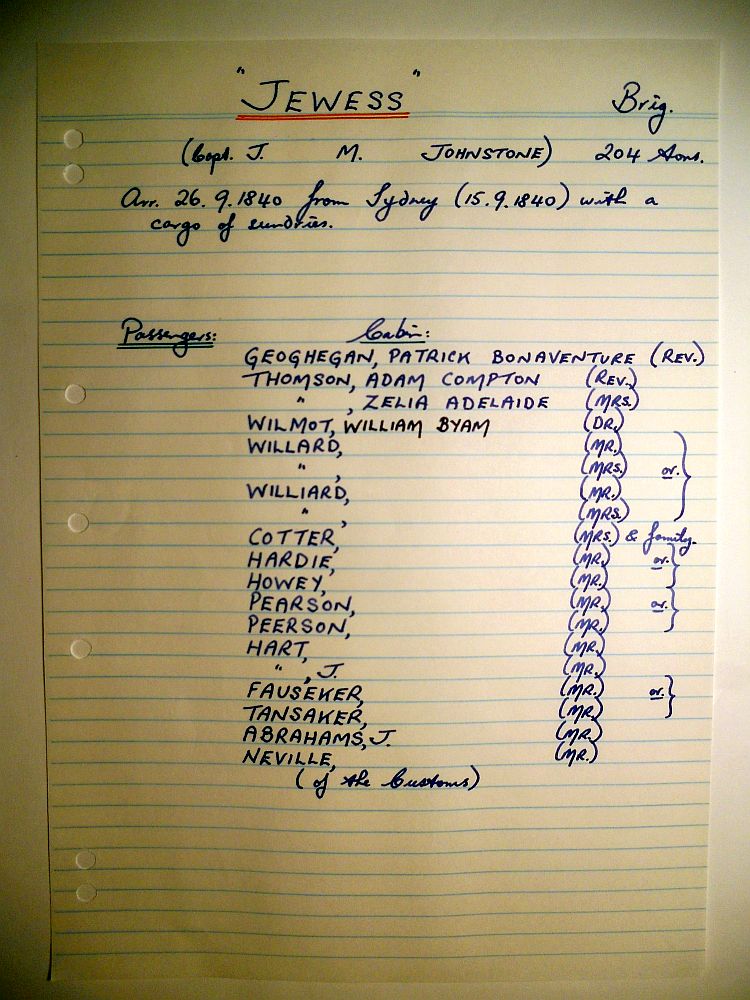 "JEWESS" Brig.
(Capt. J. M. JOHNSTONE) 204 tons.
Arr. 26.9.1840 from Sydney (15.9.1840) with a
cargo of sundries.
Passengers: Cabin:
GEOGHEGAN, PATRICK BONAVENTURE (REV.)
THOMSON, ADAM COMPTON (REV.)
" , ZELIA ADELAIDE (MRS.)
WILMOT, WILLIAM BYAM (DR.)
WILLARD, (MR.)
" , (MRS.) or.
WILLIARD, (MR.)
" , (MRS.)
COTTER, (MRS.) & family.
HARDIE, (MR.) or.
HOWEY, (MR.)
PEARSON, (MR.) or.
PEERSON, (MR.)
HART, (MR.)
" , J. (MR.)
FAUSEKER, (MR.) or.
TANSAKER, (MR.)
ABRAHAMS, J. (MR.)
NEVILLE, (MR.)
(of the Customs)